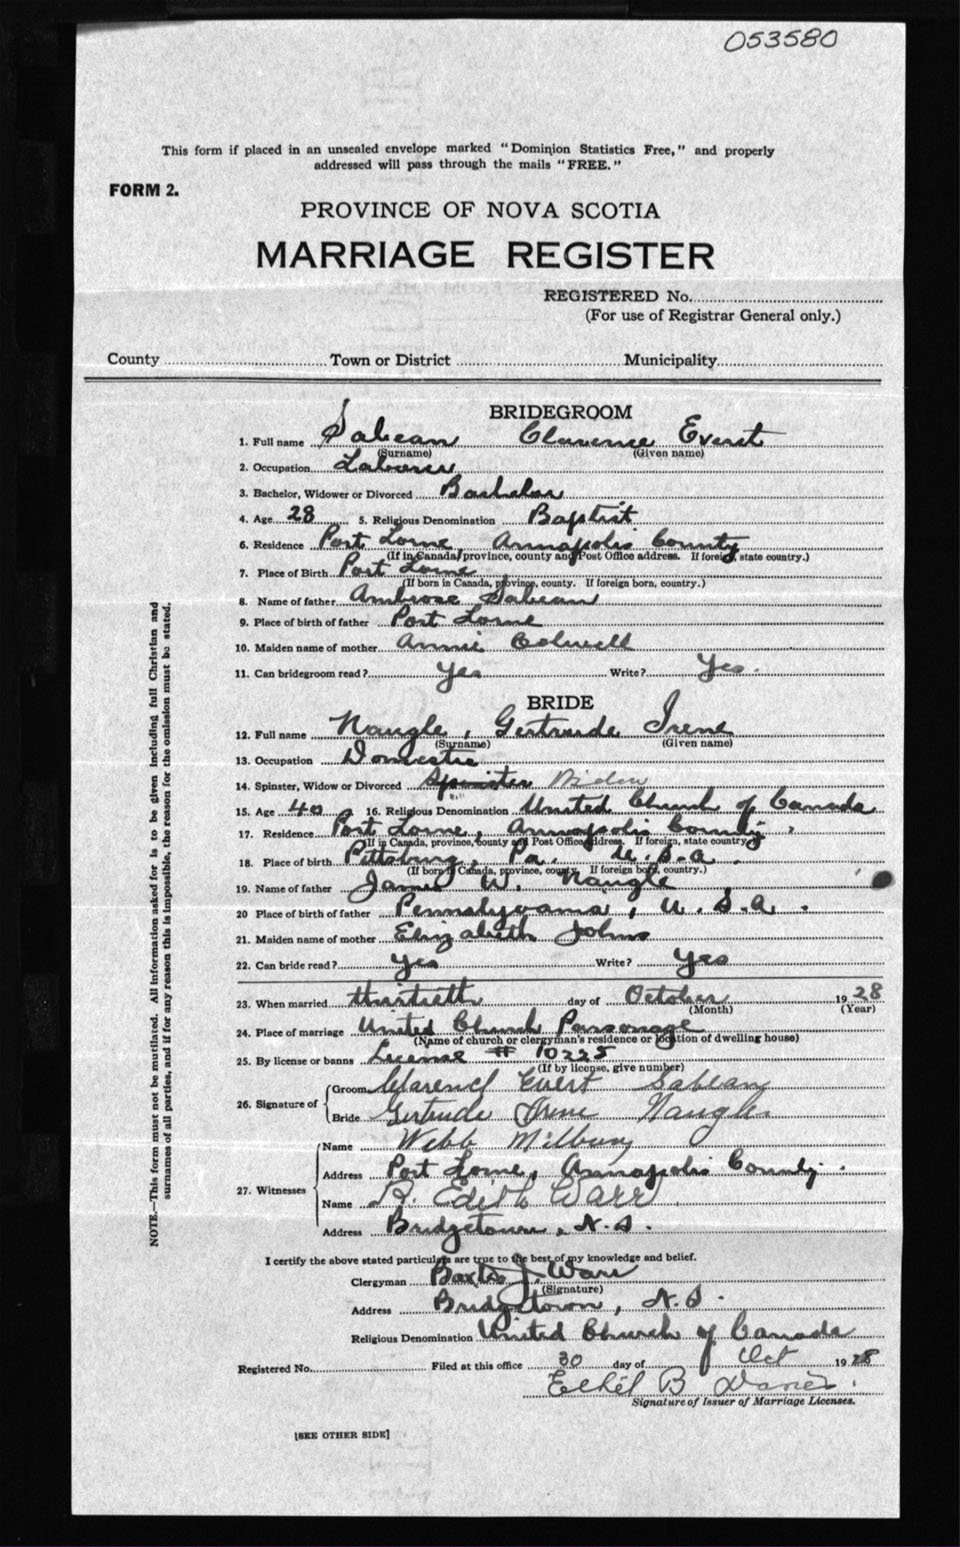 053580
This form if placed in an unsealed envelope marked "Dominion Statistics Free," and properly
addressed will pass through the mails "FREE."
FORM 2.
PROVINCE OF NOVA SCOTIA
MARRIAGE REGISTER
REGISTERED No.
(For use of Registrar General only.)
County Town or District Municipality
BRIDEGROOM
1. Full name Sabean Clarence Everet
(Surname) (Given name)
2. Occupation Laborer
3. Bachelor, Widower or Divorced Bachelor
4. Age 28 5. Religious Denomination Baptist
6. Residence Port Lorne, Annapolis County
(If in Canada, province, county and Post Office address. If foreign, state country.)
7. Place of Birth Port Lorne
(If born in Canada, province, county. If foreign born, country.)
8. Name of father Ambrose Sabean
9. Place of birth of father Port Lorne
10. Maiden name of mother Annie Colwell
11. Can bridegroom read? Yes Write? Yes.
BRIDE
12. Full name Naugle, Gertrude Irene
(Surname) (Given name)
13. Occupation Domestic
14. Spinster, Widow or Divorced Spinster Widow
15. Age 40 16. Religious Denomination United Church of Canada
17. Residence Port Lorne, Annapolis County.
(If in Canada, province, county and Post Office address. If foreign, state country.)
18. Place of birth Pittsburg, Pa. U.S.A.
(If born in Canada, province, county. If foreign born, country.)
19. Name of father James W. Naugle
20 Place of birth of father Pennsylvania, U.S.A.
21. Maiden name of mother Elizabeth Johns
22. Can bride read? Yes Write? Yes
23. When married thirtieth day of October 1928
(Month) (Year)
24. Place of marriage United Church Parsonage
(Name of church or clergyman's residence or location of dwelling house)
25. By license or banns License # 10225
(If by license, give number)
26. Signature of Groom Clarence Evert Sabean
Bride Gertrude Irene Naugle
27. Witnesses Name Webb Milbury
Address Port Lorne, Annapolis County.
Name R. Edith Warr
Address Bridgetown, N.S.
I certify the above stated particulars are true to the best of my knowledge and belief.
Clergyman J. Warr
(Signature)
Address Bridgetown, N.S.
Religious Denomination United Church of Canada
Registered No. Filed at this office 30 day of Oct 1928
Ethel B
Signature of Issuer of Marriage Licenses.
[SEE OTHER SIDE]
NOTE.—This form must not be mutilated. All information asked for is to be given including full Christian and
surnames of all parties, and if for any reason this is impossible, the reason for the omission must be stated.